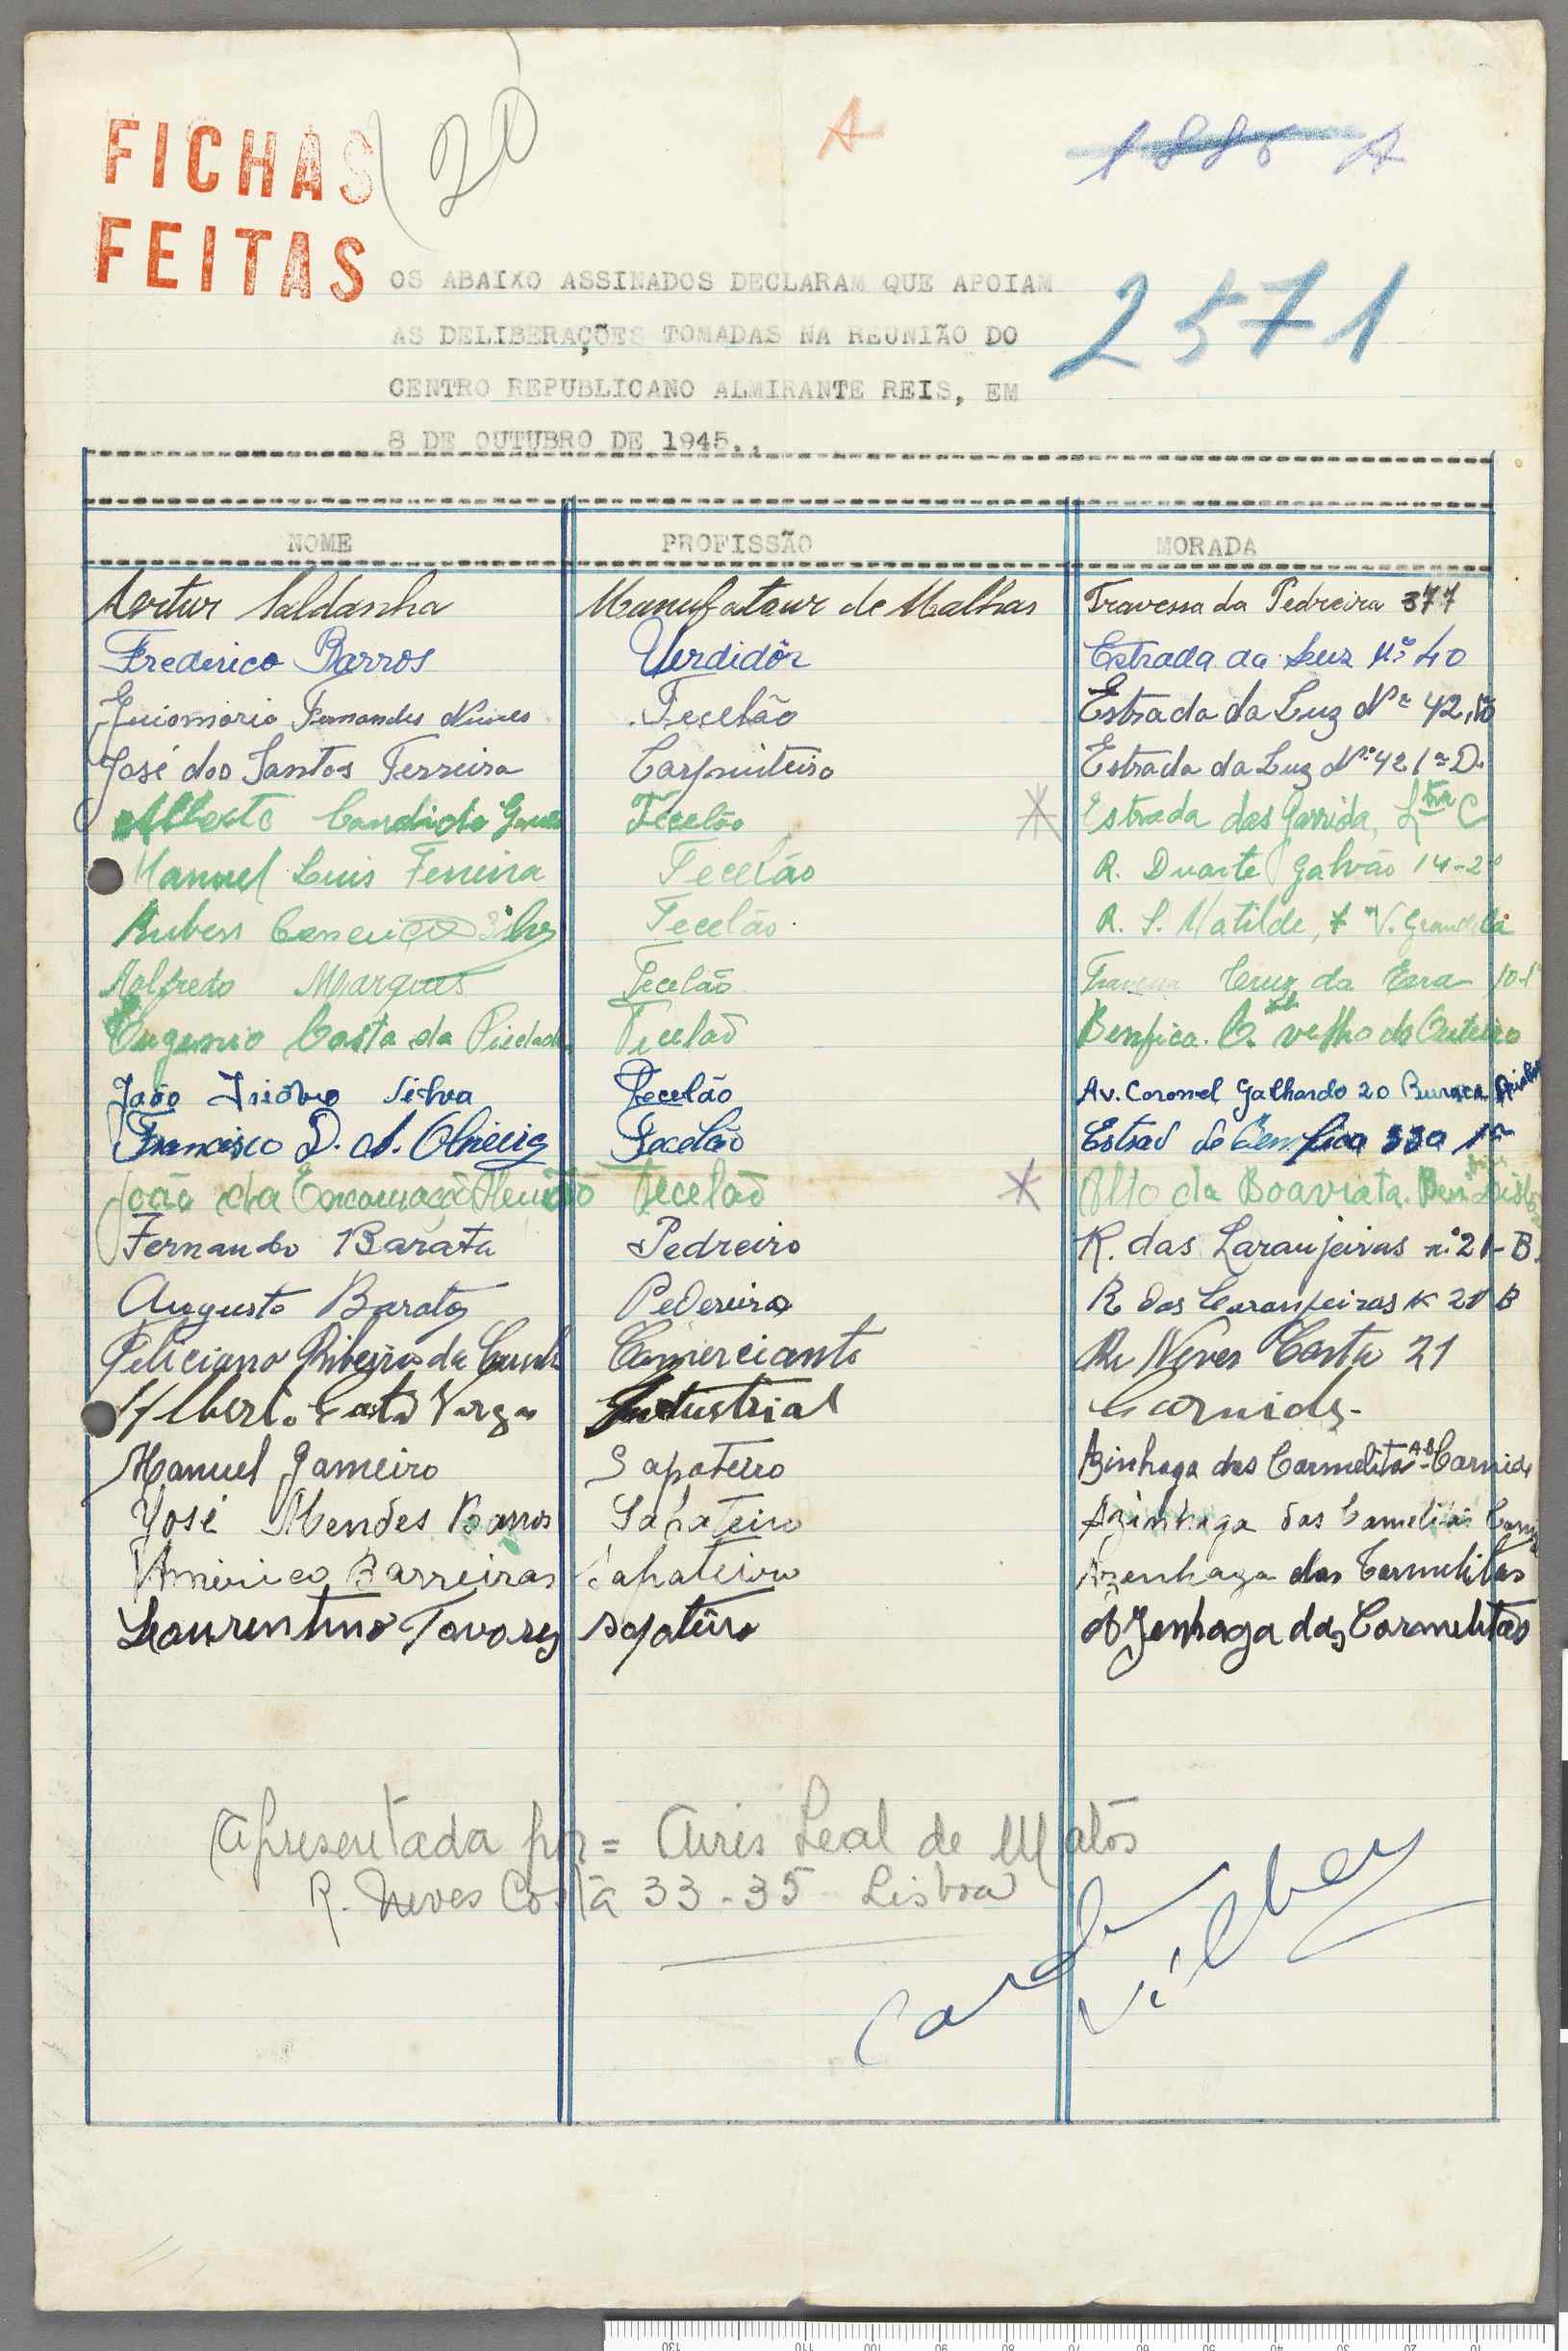 FICHAS
FEITAS
20
A
A
2571
OS ABAIXO ASSINADOS DECLARAM QUE APOIAM
AS DELIBERAÇÕES TOMADAS NA REUNIÃO DO
CENTRO REPUBLICANO ALMIRANTE REIS, EM
8 DE OUTUBRO DE 1945..
NOME PROFISSÃO MORADA
Artur Saldanha Manufatour de Malhas Travessa da Pedreira 377
Frederico Barros Urdidôr Estrada da Luz Nº 40
Fernandes Nunes Tecelão Estrada da Luz Nº 42,
José dos Santos Ferreira Carpinteiro Estrada da Luz Nº 42 1º D.
Alberto Candido Tecelão Estrada das Garrida, C
Manuel Luis Ferreira Tecelão R. Duarte Galvão 14-2º
Rubens Silva Tecelão R. S. Matilde, 7 V. Grandela
Alfredo Marques Tecelão Travessa Cruz da Era 10-1º
Eugenio Costa da Piedade Tecelão Benfica. velho do Outeiro
João Silva Tecelão Av. Coronel Galhardo 20 Buraca
Francisco D. A. Oliveira Tecelão Estrad de Benfica
João da Encarnação Tecelão Alto da Boaviata.
Fernando Barata Pedreiro R. das Laranjeiras nº 21-B.
Augusto Barata Pedereiro R das Laranjeiras 21 B
Feliciano Ribeiro da Cunh Comerciante R. Neves Costa 21
Alberto Costa Vargas Industrial Carnide.
Manuel Gameiro Sapateiro Azinhaga das Carmelitas A B Carnide
José Mendes Barros Sapateiro Azinhaga das Camelias
Américo Barreiras Sapateiro Azenhaga das Carmelitas
Laurentino Tavares sapateiro Azenhaga das Carmelitas
Apresentada por = Aires Leal de Matos
R. Neves Costa 33-35 Lisboa